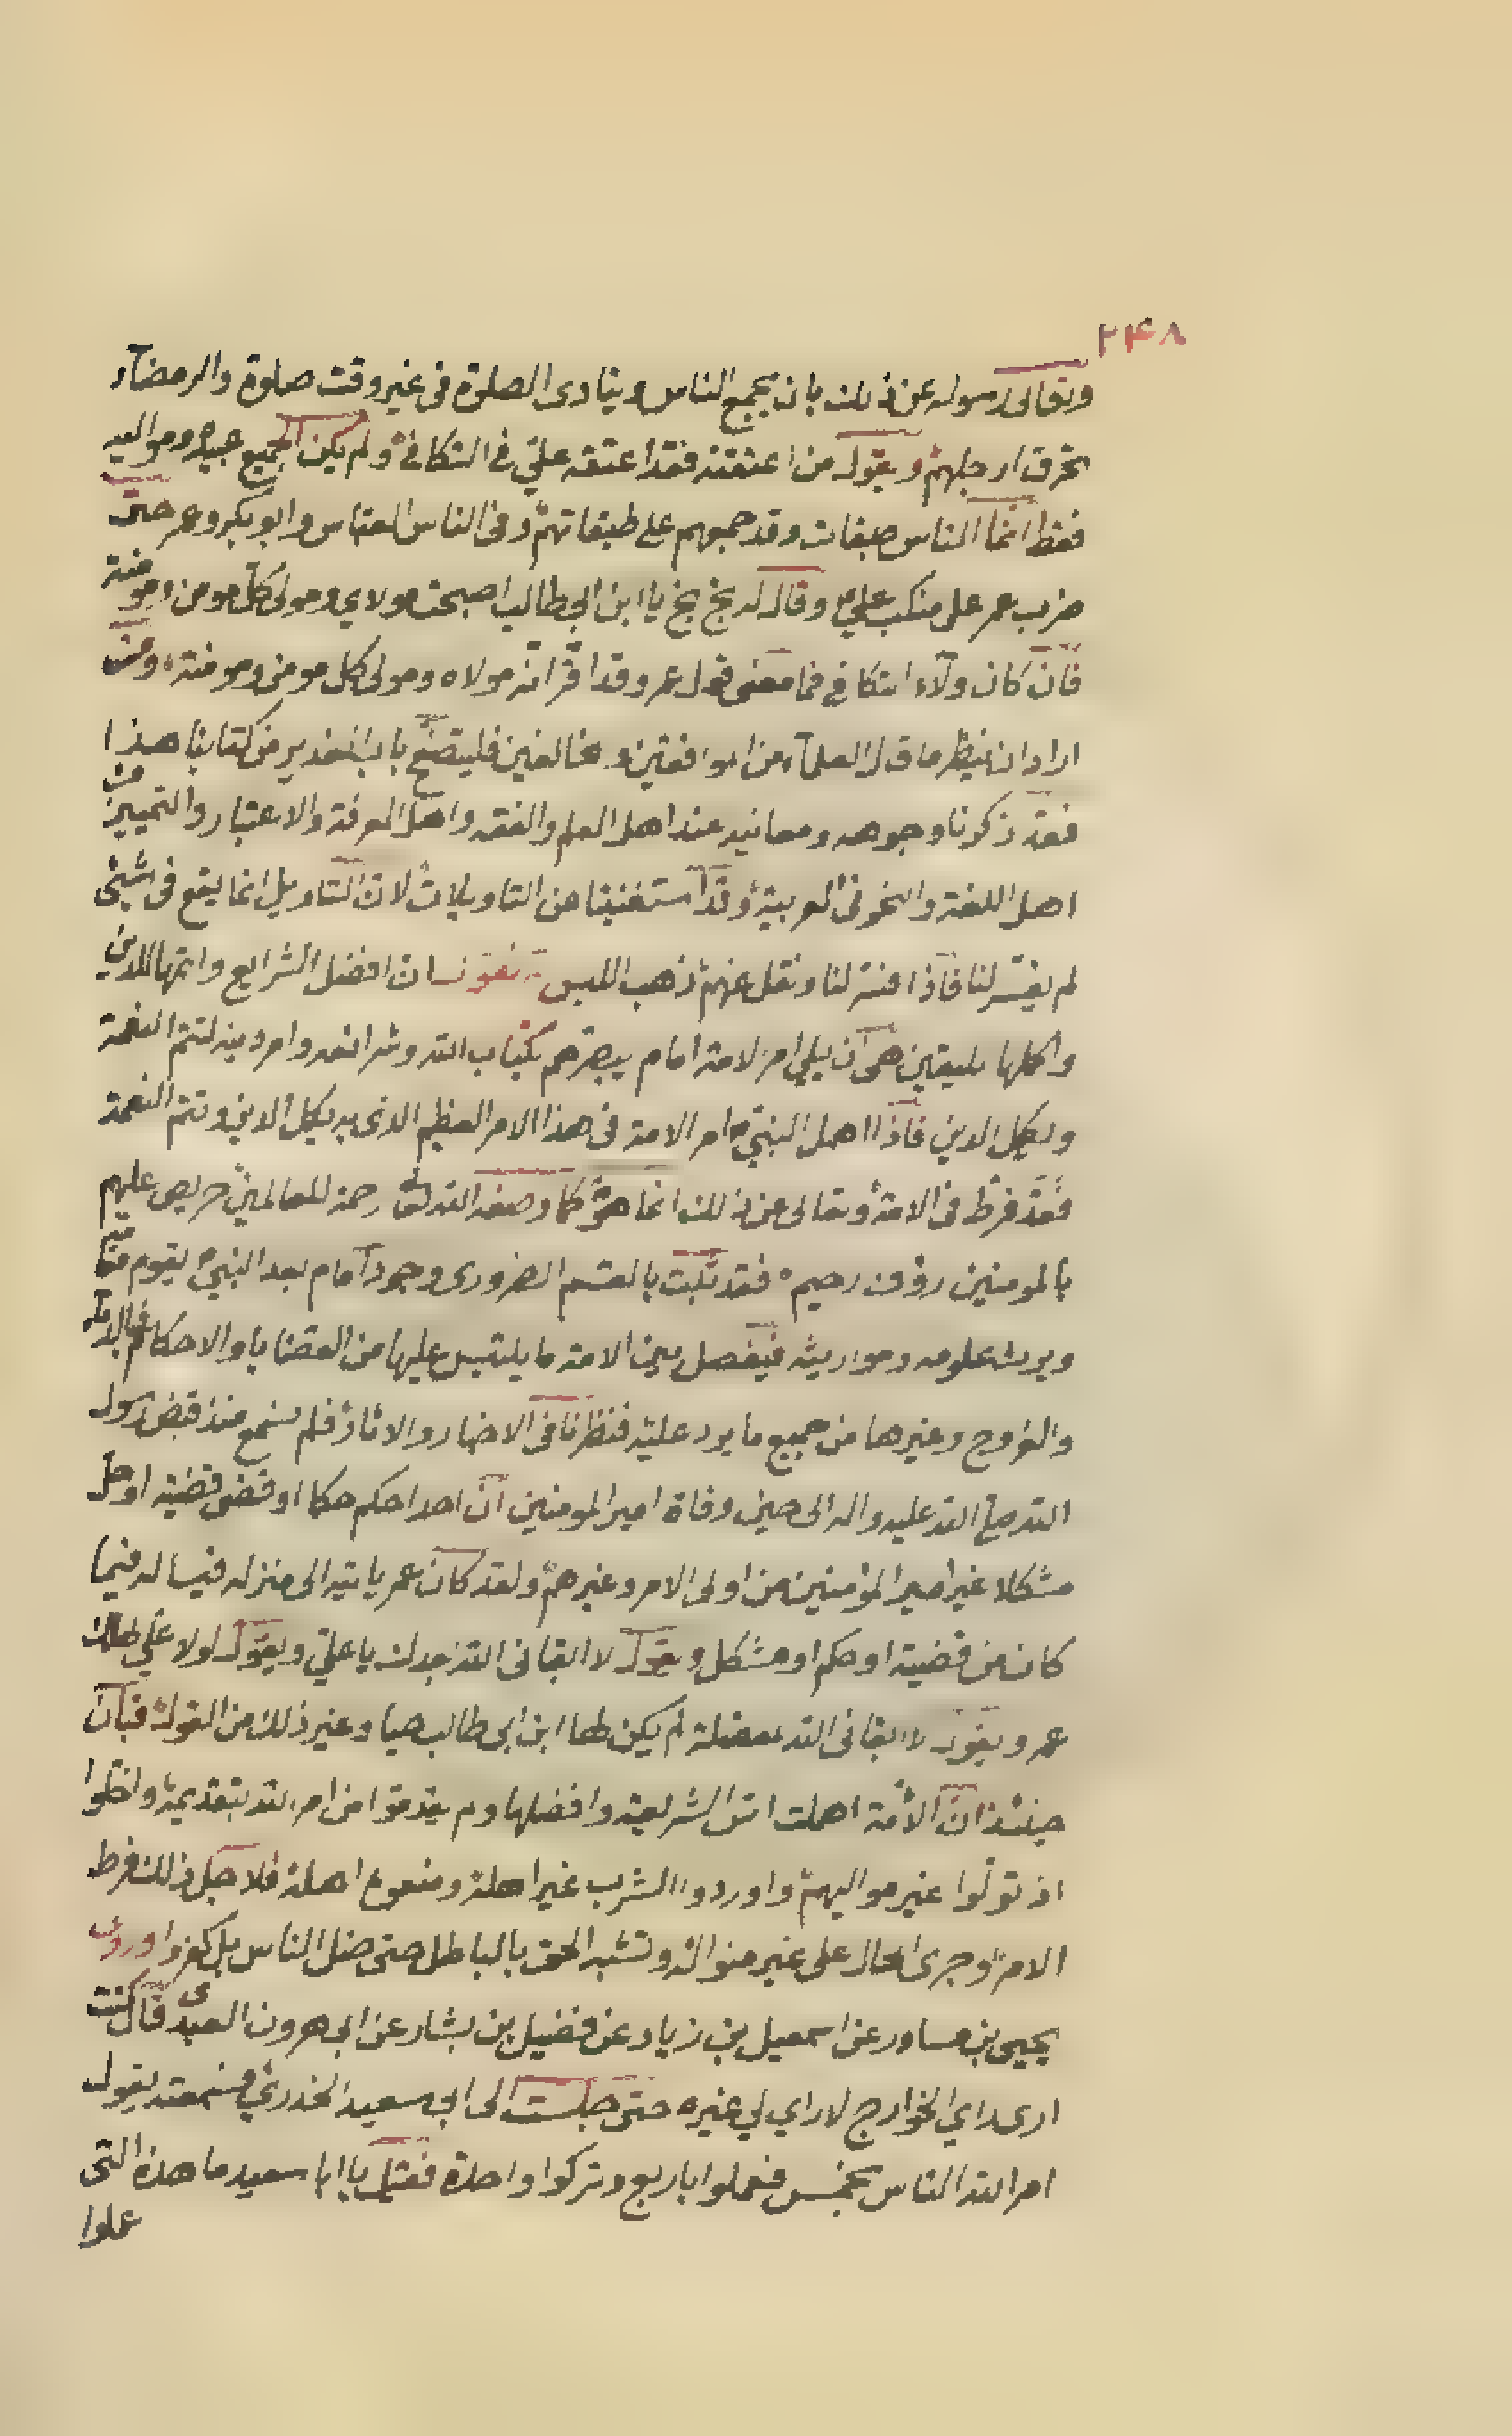 ۲۴۸
وتعالى رسوله عن ذلك بان يجمع الناس وينادى الصلوة فى غير وقت صلوة والرمضآء
تحرق ارجلهم ويقول من اعتقته فقد اعتقه علىّ فى التكافى ولم يكن الجميع عبيده ومواليه
فقط انما الناس طبقات وقد جمعهم على طبقاتهم وفى الناس العباس وابو بكر وعمر حتى
ضرب عمر على منكب علي وقال له بخ بخ يا ابن ابى طالب اصبحت مولاي ومولى كل مومن ومومنة
فان كان ولآء التكافي فما معنى قول عمر وقد اقر انه مولاه ومولى كل مومن ومومنة ومن
اراد ان ينظر ما قال العلمآء من الموافقين ومخالفين فليتصفح باب الغدير من كتابنا هذا
فقد ذكرنا وجوهه ومعانيه عند اهل العلم والفقه واهل المعرفة والاعتبار والتمييز من
اهل اللغة والنحو فى العربية وقد استغنينا من التاويلات لان التاويل انما يقع فى شيئ
لم يفسّر لنا فاذا فسّر لنا ونقل عنهم ذهب اللبس ونقول ان افضل الشرايع واتمها للدين
واكملها لليقين هى ان يلي امر الامة امام يبصرهم بكتاب الله وشرائعه وامر دينه لتتم النعمة
ويكمل الدين فاذا اهمل النبيّ امر الامة فى هذا الامر العظيم الذى به يكمل الدين وتتم النعمة
فقد فرّط فى الامة وتعالى عن ذلك انما هو كما وصفه الله رحمة للعالمين حريص عليهم
بالمومنين رؤوف رحيم فقد ثبت بالقسم الضرورى وجود امام بعد النبيّ يقوم مقامه
ويرث علومه ومواريثه فيفصل بين الامة ما يلتبس عليها من القضايا والاحكام فى الدماء
والفروج وغيرها من جميع ما يرد عليه فنظرنا فى الاخبار والاثار فلم نسمع منذ قبض رسول
الله صلى الله عليه واله الى حين وفاة امير المومنين ان احدا حكم حكما او قضى قضية او حلّ
مشكلا غير امير المؤمنين من اولى الامر وغيرهم ولقد كان عمر ياتيه الى منزله فيساله فيما
كان من قضية او حكم او مشكل ويقول لا ابقانى الله بعدك يا علىّ ويقول لولا علي لهلك
عمر ويقول لا ابقانى الله لمعضلة لم يكن لها ابن ابى طالب حيا وغير ذلك من القول فبان
حينئذ ان الأمة اهملت اتمّ الشريعة وافضلها ولم يقدموا من امر الله بتقديمه واخطوا
اذ تولّوا غير مواليهم واوردوا الشرب غير اهله ومنعوه اهله فلاجل ذلك فرط
الامر وجرى الحال على غير منواله وتشبه الحق بالباطل حتى ضل الناس بل كفروا وروى
يحيى بن مساور عن اسمعيل بن زياد عن فضيل بن يشار عن ابى هرون العبدى قال كنت
ارى راي الخوارج لا راي لي غيره حتى جلست الى ابى سعيد الخدري فسمعته يقول
امر الله الناس بخمس فعملوا باربع وتركوا واحدة فقيل يا ابا سعيد ما هذه التى
عملوا